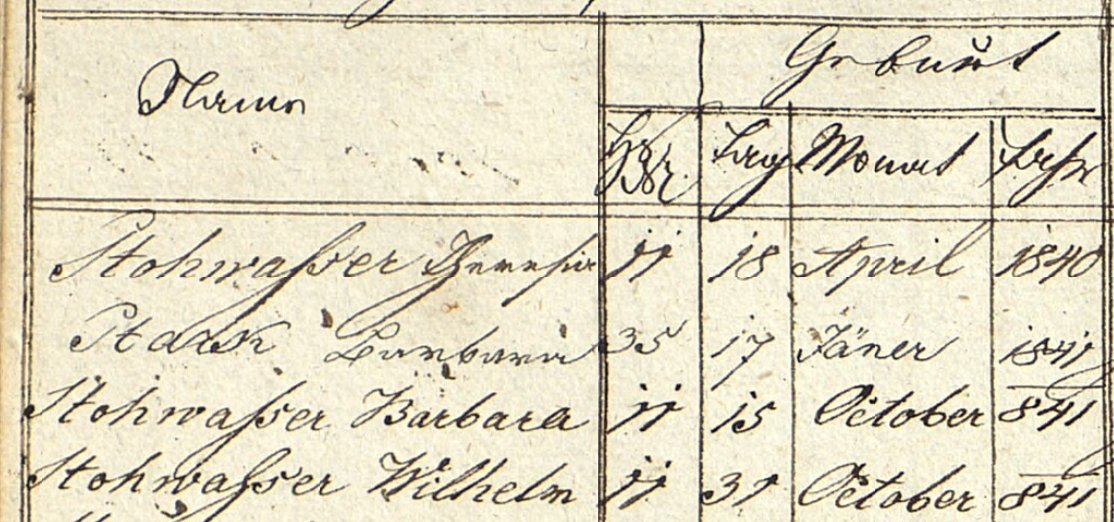 Geburt
Name
HNr. Tag Monat Jahr
Stohwasser Theresia 11 18 April 1840
Stark Barbara 35 17 Jäner 1841
Stohwaßer Barbara 11 15 October 841
Stohwaßer Wilhelm 11 31 October 841